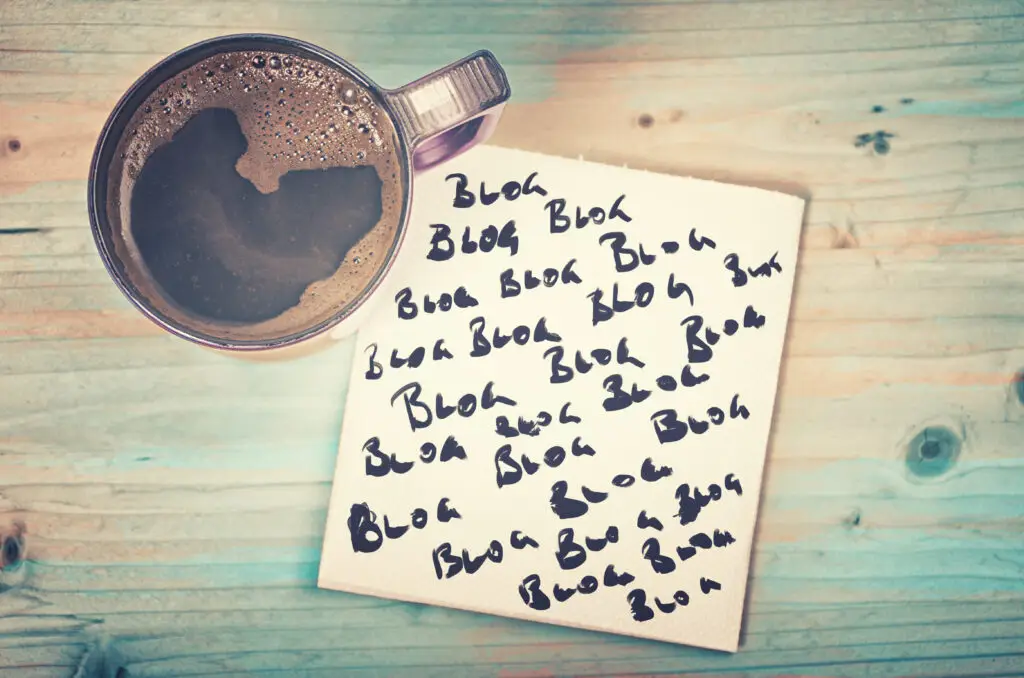 BLOG
BLOG BLOG
BLOG BLOG BLOG
BLOG BLOG BLOG BLOG
BLOG BLOG
BLOG BLOG BLOG
BLOG BLOG BLOG
BLOG BLOG
BLOG BLOG BLOG BLOG
BLOG BLOG